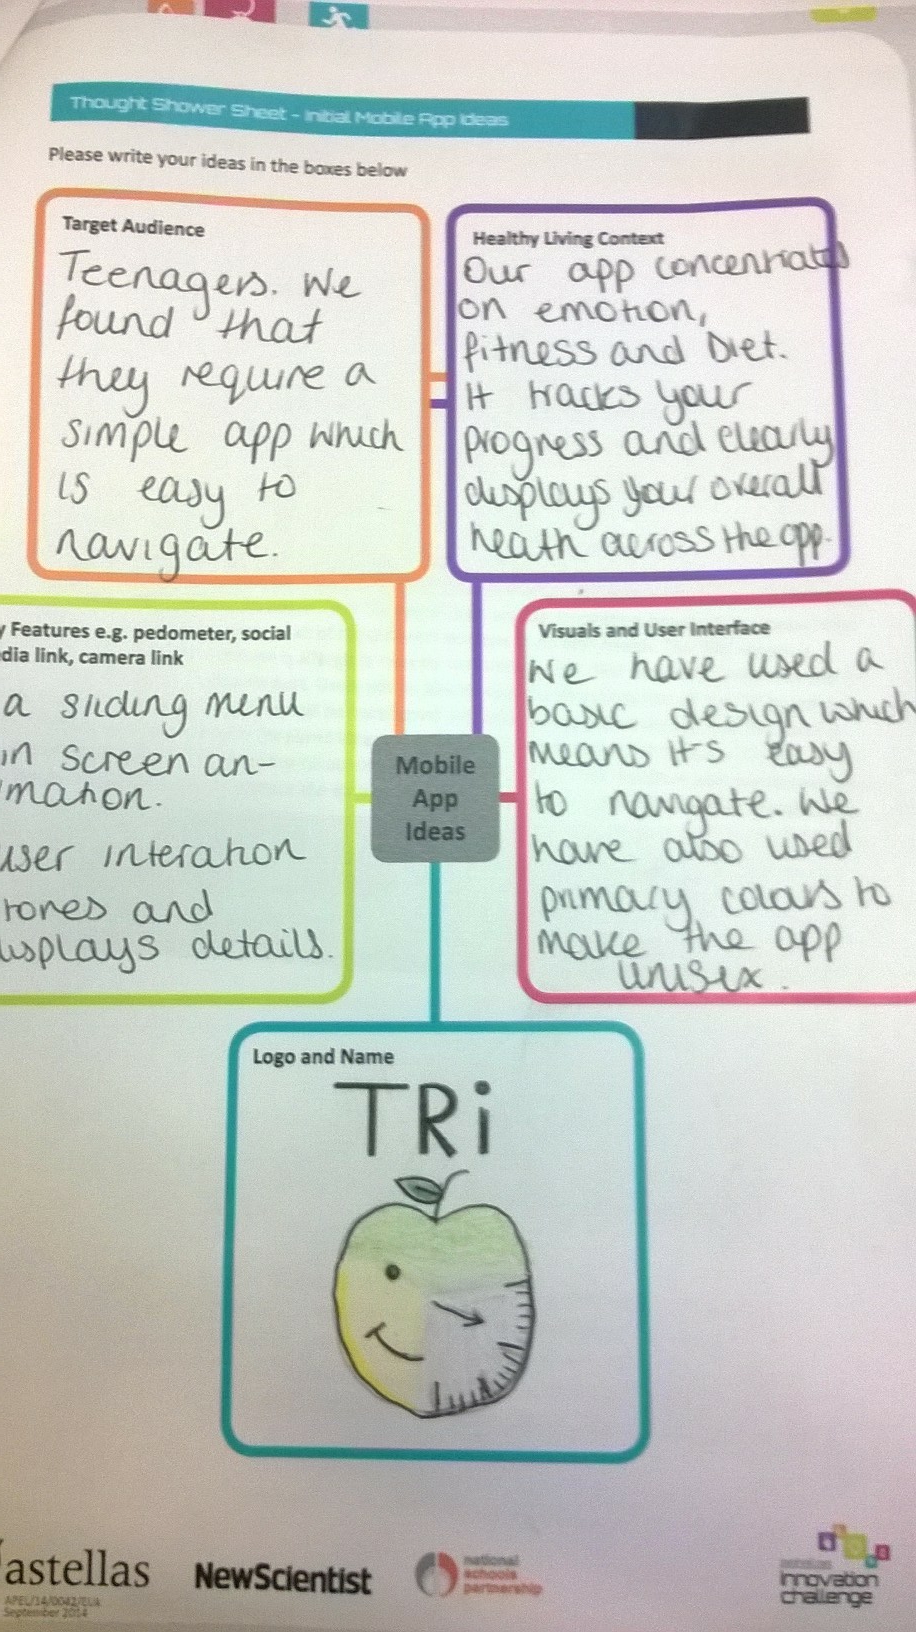 Thought Shower Sheet - Initial Mobile App Ideas
Please write your ideas in the boxes below
Target Audience
Teenagers. We
found that
they require a
simple app which
is easy to
navigate.
Healthy Living Context
Our app concentrates
on emotion,
fitness and Diet.
It tracks your
progress and clearly
displays your overall
heath across the app.
y Features e.g. pedometer, social
dia link, camera link
a sliding menu
in screen an-
imation.
user interation
tores and
displays details.
Visuals and User Interface
We have used a
basic design which
means it's easy
to navigate. We
have also used
primary colours to
make the app
unisex.
Mobile
App
Ideas
Logo and Name
TRi
astellas
APEL/14/0042/EUa
September 2014
NewScientist
national
schools
partnership
innovation
challenge